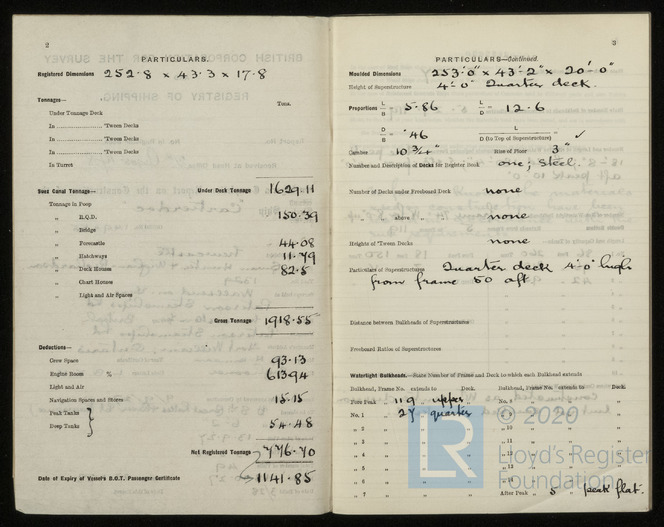 2
PARTICULARS.
Registered Dimensions 252.8 x 43.3 x 17.8
Tonnages— Tons.
Under Tonnage Deck
In ........................ 'Tween Decks
In ........................ 'Tween Decks
In ........................ 'Tween Decks
In Turret
Suez Canal Tonnage— Under Deck Tonnage 1629.11
Tonnage in Poop
„ R.Q.D. 150.39
„ Bridge
„ Forecastle 44.08
„ Hatchways 11.79
„ Deck Houses 82.5
„ Chart Houses
„ Light and Air Spaces
Gross Tonnage 1918.55
Deductions—
Crew Space 93.13
Engine Room % 613.94
Light and Air
Navigation Spaces and Stores 15.15
Peak Tanks
Deep Tanks 54.48
Net Registered Tonnage 776.70
Date of Expiry of Vessel's B.O.T. Passenger Certificate 1141.85
3
PARTICULARS—Continued.
Moulded Dimensions 253'.0" x 43'.2" x 20'.0"
Height of Superstructure 4'.0" Quarter deck.
Proportions L/B = 5.86 L/D = 12.6
D/B = .46 L/D (to Top of Superstructure) ✓
Camber 10 3/4" Rise of Floor 3"
Number and Description of Decks for Register Book one, steel.
Number of Decks under Freeboard Deck none
„ „ above „ „ none
Heights of 'Tween Decks none
Particulars of Superstructures Quarter deck 4'.0" high
from frame 50 aft.
Distance between Bulkheads of Superstructures
Freeboard Ratios of Superstructures
Watertight Bulkheads.—State Number of Frame and Deck to which each Bulkhead extends
Bulkhead, Frame No. extends to Deck. Bulkhead, Frame No. extends to Deck.
Fore Peak „ 119 „ upper No. 8 „ „
No. 1 „ 27 „ quarter „ 9 „ „
„ 2 „ „ „ 10 „ „
„ 3 „ „ „ 11 „ „
„ 4 „ „ „ 12 „ „
„ 5 „ „ „ 13 „ „
„ 6 „ „ „ 14 „ „
„ 7 „ „ After Peak „ 5 „ peak flat.
LR
© 2020
Lloyd's Register
Foundation